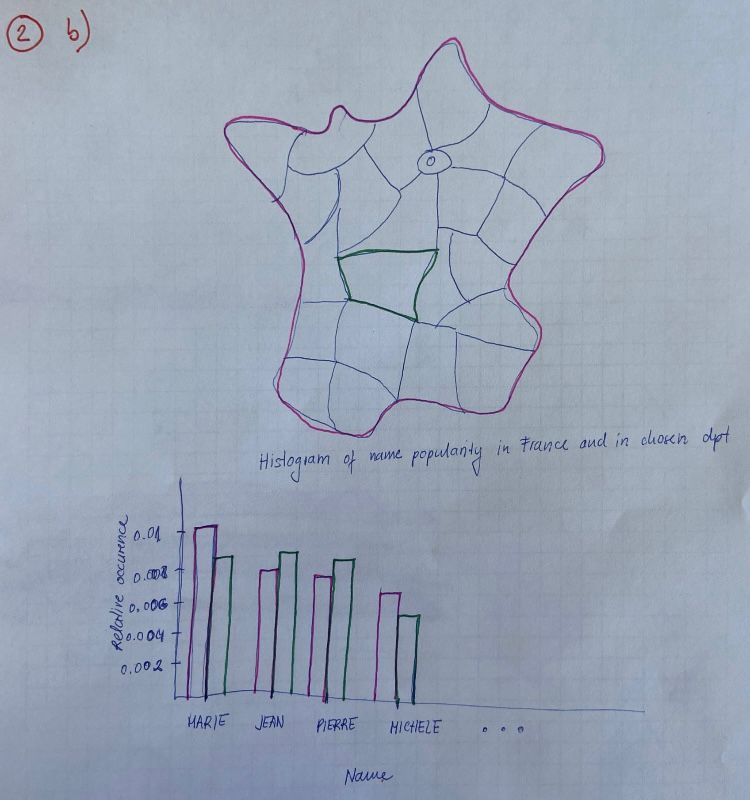 2 b)
Histogram of name popularity in France and in chosen dpt
Relative occurence
0.01
0.008
0.006
0.004
0.002
MARIE JEAN PIERRE MICHELE ...
Name